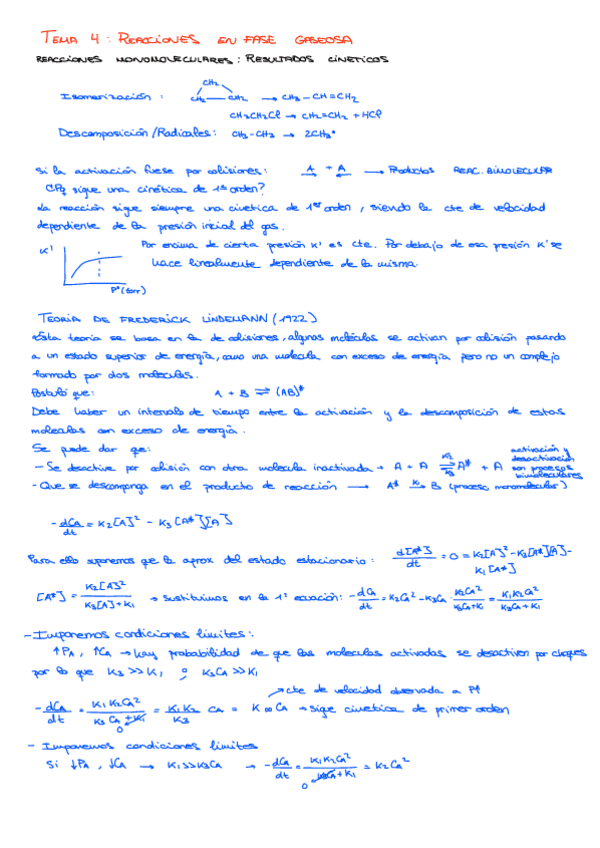 TEMA 4: REACCIONES EN FASE GASEOSA
REACCIONES MONOMOLECULARES: RESULTADOS CINETICOS
CH2
Isomerización: CH2 — CH2 → CH3 – CH = CH2
CH3CH2Cl → CH2=CH2 + HCl
Descomposición/Radicales: CH3-CH3 → 2CH3•
Si la activación fuese por colisiones: A + A → Productos REAC. BIMOLECULAR
¿Pq sigue una cinética de 1er orden?
La reacción sigue siempre una cinetica de 1er orden, siendo la cte de velocidad
dependiente de la presión inicial del gas.
K' Por encima de cierta presión K' es cte. Por debajo de esa presión K' se
hace linealmente dependiente de la misma.
P°(torr)
TEORIA DE FREDERICK LINDEMANN (1922)
Esta teoria se basa en la de colisiones, algunas moléculas se activan por colisión pasando
a un estado superior de energía, como una molecula con exceso de energia pero no un complejo
formado por dos moleculas.
Postuló que: A + B ⇌ (AB)*
Debe haber un intervalo de tiempo entre la activación y la descomposición de estas
moleculas con exceso de energia.
Se puede dar que:
- Se desactive por colisión con otra molecula inactivada → A + A ⇌ A* + A K2 K3 activación y desactivación son procesos bimoleculares
- Que se descomponga en el producto de reacción → A* →K1 B (proceso monomolecular)
-dCA/dt = K2[A]² - K3[A*][A]
Para ello suponemos que la aprox del estado estacionario: d[A*]/dt = 0 = K2[A]² - K3[A*][A] -
K1[A*]
[A*] = K2[A]²/K3[A]+K1 → sustituimos en la 1ª ecuación: -dCA/dt = K2CA² - K3CA · K2CA²/K3CA+K1 = K1K2CA²/K3CA+K1
- Imponemos condiciones limites:
↑PA, ↑CA → hay probabilidad de que las moleculas activadas se desactiven por choques
por lo que K3 >> K1 o K3CA >> K1
cte de velocidad observada a P↑
-dCA/dt = K1K2CA²/K3CA+K1 = K1K2/K3 CA = K∞CA → sigue cinetica de primer orden
0
- Imponemos condiciones limites
Si ↓PA, ↓CA → K1>>K3CA → -dCA/dt = K1K2CA²/K3CA+K1 = K2CA²
0